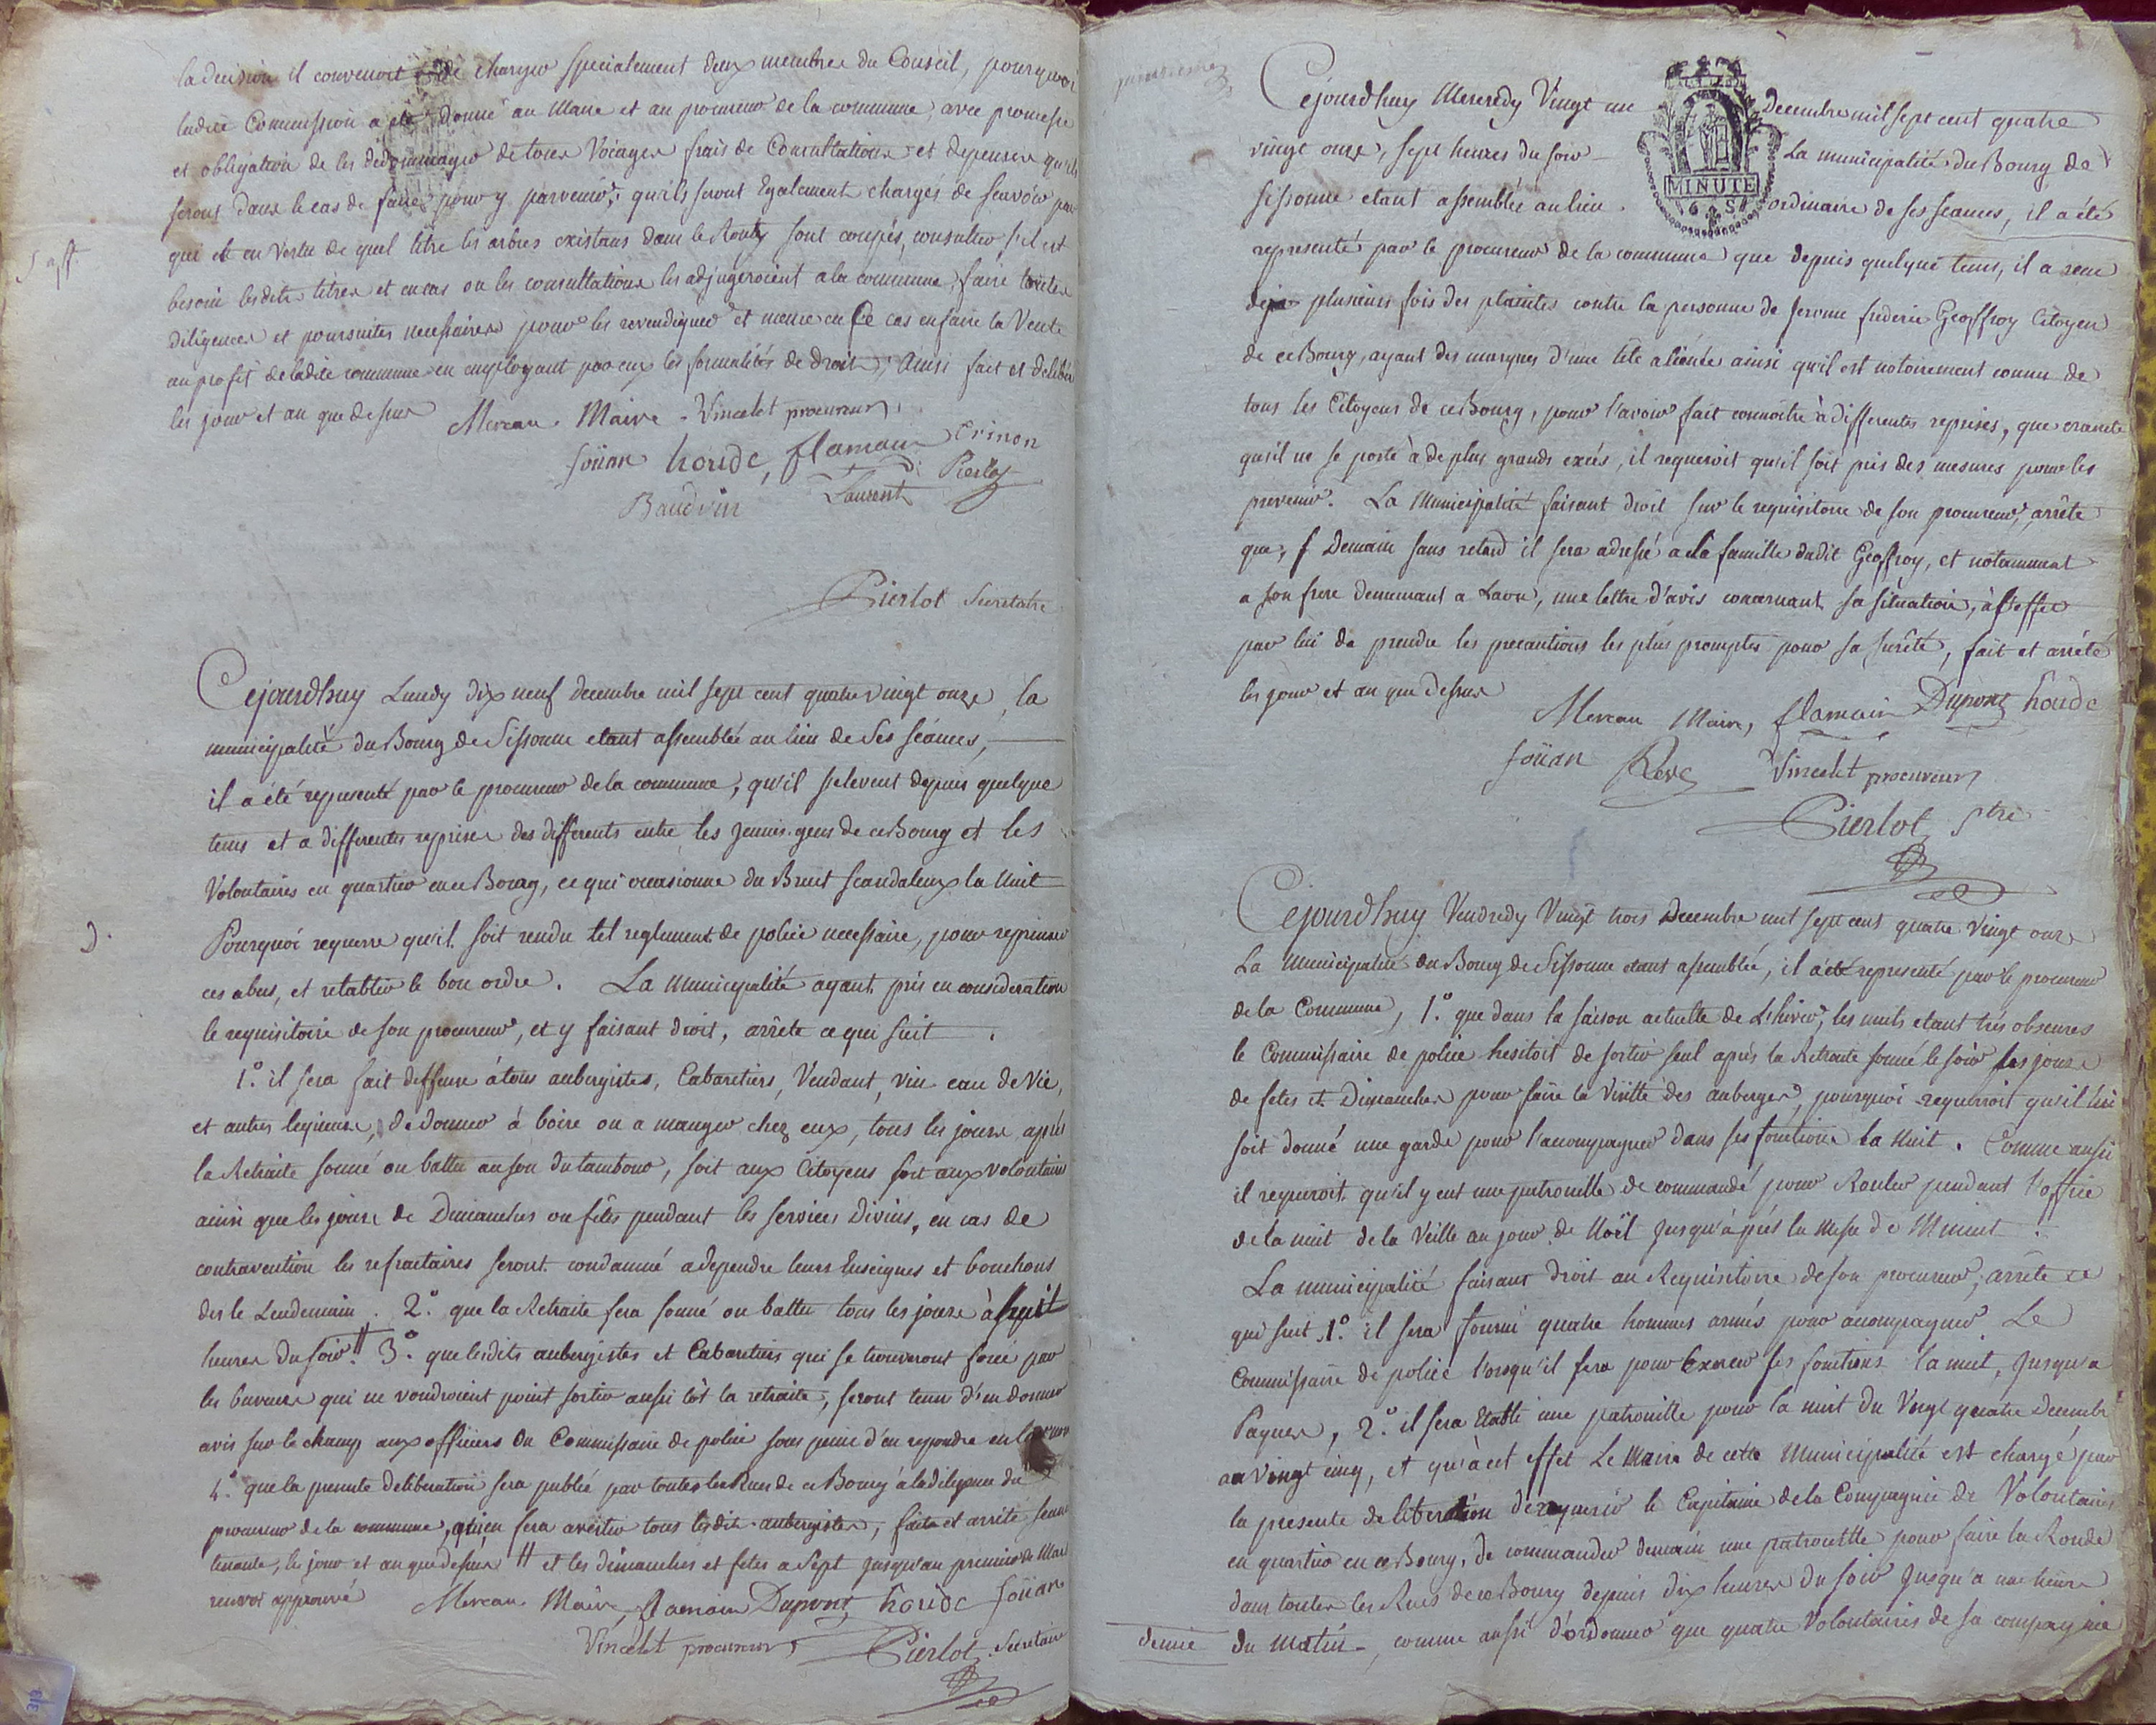 la decision il convenoit de charger specialement deux membres du Conseil, pourquoi
ladite Commission a été donné au Maire et au procureur de la commune, avec promesse
et obligation de les dedommager de tous Voiages frais de Consultations et depenses qu'ils
seront dans le cas de faire pour y parvenir, qu'ils seront Egalement chargés de scavoir par
qui et en Vertu de quel titre les arbres existans dans le Routy sont coupés, consulter s'il est
besoin lesdits titres et en cas ou les consultations les adjugeroient a la commune, faire toutes
diligences et poursuites necessaires pour les revendiquer et meme en Ce cas en faire la Vente
au profit de ladite commune en employant par eux les formalités de droit; Ainsi fait et delibéré
les jour et an que dessus Mereau Maire Vincelet procureur
foüan houde, flamain Crinon
Baudoin Laurent Pierlot
Pierlot Secretaire
Cejourdhuy Lundy dix neuf decembre mil sept cent quatre vingt onze, la
municipalité du Bourg de Sissonne etant assemblée au lieu de Ses séances,
il a été representé par le procureur de la commune, qu'il s'elevent depuis quelque
tems et a differentes reprises des differents entre les jeunes gens de ce Bourg et les
Volontaires en quartier en ce Bourg, ce qui occasionne du Bruit scandaleux la Nuit
Pourquoi requerre qu'il soit rendu tel reglement de police necessaire, pour reprimer
ces abus, et retablir le bon ordre. La Municipalité ayant pris en consideration
le requisitoire de son procureur, et y faisant droit, arrête ce qui suit.
1.° il sera fait deffense à tous aubergistes, Cabaretiers, Vendant, vin eau de Vie,
et autres liqueurs, de donner à boire ou a manger chez eux, tous les jours après
la Retraite sonné ou battu au son du tambour, soit aux Citoyens soit aux volontaires
ainsi que les jours de Dimanches ou fêtes pendant les services Divins, en cas de
contravention les refractaires seront condamné a dependre leurs Enseignes et bouchons
des le Lendemain. 2.° que la Retraite sera sonné ou battu tous les jours à huit
heures du soir # 3.° que lesdits aubergistes et Cabaretiers qui se trouveront forcé par
les buveurs qui ne voudroient point sortir aussi tôt la retraite, seront tenu d'en donner
avis sur le champ aux officiers ou Commissaire de police sous peine d'en repondre en
4.° que la presente deliberation sera publiée par toutes les Rues de ce Bourg à la diligence du
procureur de la commune, qui en sera avertir tous lesdits aubergistes, fait et arrété seance
tenante, les jour et an que dessus # et les dimanches et fetes a Sept jusqu'au premier de Mai
renvoi approuvé Mereau Maire flamain Dupont houde foüan
Vincelet procureur Pierlot Secretaire
Cejourdhuy Mercredy Vingt un Decembre mil sept cent quatre
vingt onze, sept heures du soir La municipalité du Bourg de
MINUTE
6 S
Sissonne etant assemblée au lieu ordinaire de ses seances, il a été
representé par le procureur de la commune que depuis quelque tems, il a recu
deja plusieurs fois des plaintes contre la personne de Jerome frederic Geoffroy Citoyen
de ce Bourg, ayant des marques d'une tête aliénée ainsi qu'il est notoirement connu de
tous les Citoyens de ce Bourg, pour l'avoir fait connoitre à differentes reprises, que crainte
qu'il ne se porte à de plus grands excés, il requeroit qu'il soit pris des mesures pour les
prevenir. La Municipalité faisant droit sur le requisitoire de son procureur, arrête
que, Demain sans retard il sera adressé a la famille dudit Geoffroy, et notamment
a son frere demeurant a Laon, une lettre d'avis concernant sa situation, à l'effet
par lui de prendre les precautions les plus promptes pour sa sureté, fait et arrété
les jour et an que dessus Mereau Maire, flamain Dupont houde
foüan Vincelet procureur
Pierlot Stre
Cejourdhuy Vendredy Vingt trois Decembre mil sept cent quatre Vingt onze
La Municipalité du Bourg de Sissonne etant assemblée, il a été representé par le procureur
de la Commune, 1.° que dans la saison actuelle de L'hiver, les nuits etant très obscures
le Commissaire de police hesitoit de sortir seul après la Retraite sonné le soir les jours
de fetes et Dimanches pour faire la Visitte des auberges, pourquoi requerroit qu'il lui
soit donné une garde pour l'accompagner dans ses fonctions la Nuit. Comme aussi
il requeroit qu'il y eut une patrouille de commandé pour Rouler pendant l'office
de la nuit de la Veille au jour de Noël jusqu'après la Messe de Minuit.
La municipalité faisant droit au Requisitoire de son procureur, arrête ce
qui suit. 1.° il sera fourni quatre hommes armés pour accompagner Le
Commissaire de police lorsqu'il sera pour Exercer ses fonctions la nuit, jusqu'a
Paques, 2.° il sera Etabli une patrouille pour la nuit du Vingt quatre Decembre
au Vingt cinq, et qu'à cet effet Le Maire de cette Municipalité est chargé par
la presente deliberation de requerir le Capitaine de la Compagnie de Volontaires
en quartier en ce Bourg, de commander demain une patrouille pour faire la Ronde
dans toutes les Rues de ce Bourg depuis dix heures du soir jusqu'a une heure
demie du matin, comme aussi d'ordonner que quatre Volontaires de sa compagnie